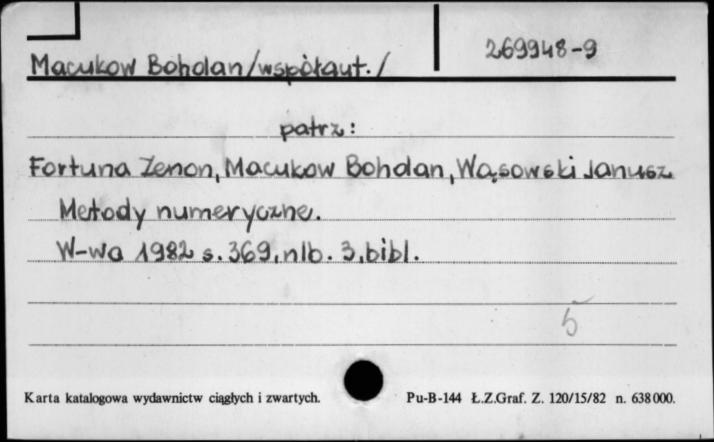 269948-9
Macukow Bohdan/współaut./
patrz:
Fortuna Zenon, Macukow Bohdan, Wąsowski Janusz
Metody numeryczne.
W-wa 1982 s. 369, nlb. 3, bibl.
5
Karta katalogowa wydawnictw ciągłych i zwartych. Pu-B-144 Ł.Z.Graf. Z. 120/15/82 n. 638000.